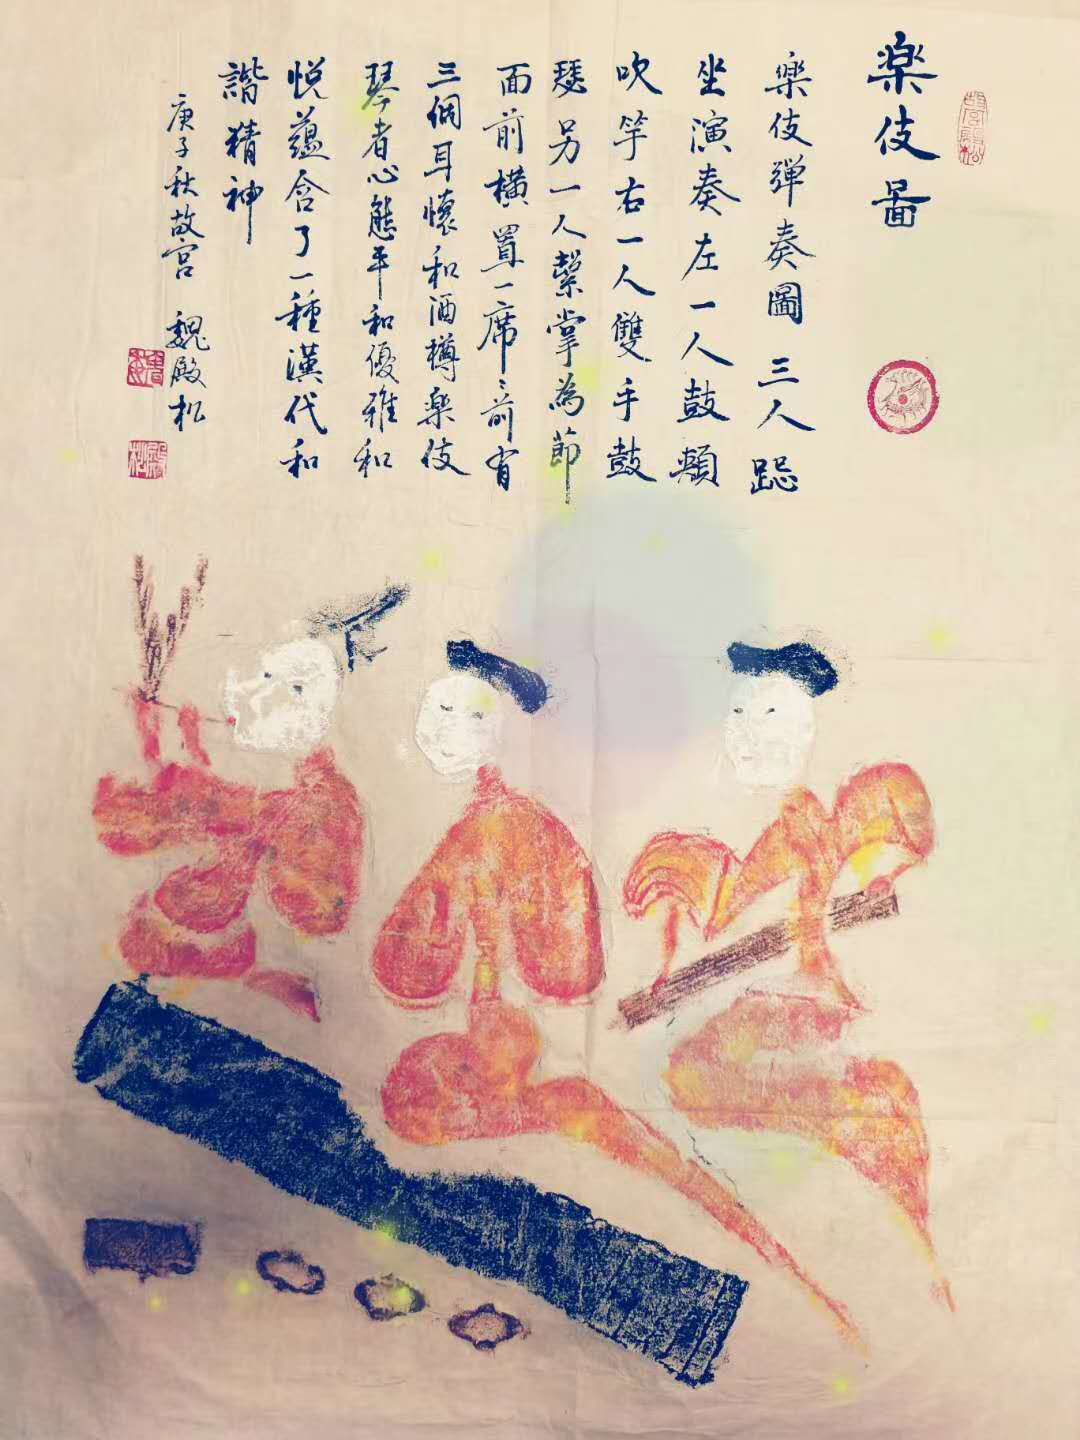 楽伎啚
楽伎彈奏圖 三人跽
坐演奏左一人鼓頰
吹竽右一人雙手鼓
瑟另一人擊掌為節
面前橫置一席〻前有
三個耳懷和酒樽楽伎
琴者心態平和優雅和
悅蘊含了一種漢代和
諧精神
庚子秋故宮 魏殿松